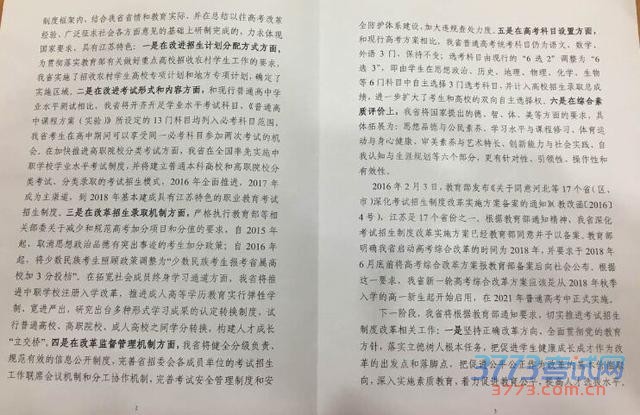 制度框架内、结合我省省情和教育实际、并在总结以往高考改革
经验、广泛征求社会各方面意见的基础上研制完成的，力求体现
国家要求，具有江苏特色：一是在改进招生计划分配方式方面，
为贯彻落实教育部有关做好重点高校招收农村学生工作的要求，
我省实施了招收农村学生高校专项计划和地方专项计划，确定了
实施区域。二是在改进考试形式和内容方面，和现行普通高中学
业水平测试相比，我省将开齐开足学业水平考试科目，《普通高
中课程方案（实验）》所设定的13门科目均列入必考科目范围，
我省考生在高中期间可以享受同一必考科目参加两次考试的机
会。在加快推进高职院校分类考试方面，我省在全国率先实施中
职学校学业水平考试制度，并将建立普通本科高校和高职院校分
类考试、分类录取的考试招生模式，2016年全面推进，2017年
成为主渠道，到2018年基本建成具有江苏特色的职业教育考试
招生制度。三是在改革招生录取机制方面，严格执行教育部等相
关部委关于减少和规范高考加分项目和分值的要求，自2015年
起，取消思想政治品德有突出事迹的考生加分政策；自2016年
起，将少数民族考生照顾政策调整为“少数民族考生报考省属高
校加3分投档”。在拓宽社会成员终身学习通道方面，我省将推
进中职学校注册入学改革，推进成人高等学历教育实行弹性学
制、宽进严出，研究出台多种形式学习成果的认定转换制度，试
行普通高校、高职院校、成人高校之间学分转换，构建人才成长
“立交桥”。四是在改革监督管理机制方面，我省将健全分级负责、
规范有效的信息公开制度，完善省招委会各成员单位的考试招生
工作联席会议机制和分工协作机制，完善考试安全管理制度和安
2
全防护体系建设，加大违规查处力度。五是在高考科目设置方面，
和现行高考方案相比，我省普通高考统考科目仍为语文、数学、
外语3门，保持不变；选考科目由现行的“6选2”调整为“6
选3”，即由学生在思想政治、历史、地理、物理、化学、生物
等6门科目中自主选择3门选考科目，并计入高校招生录取总成
绩，进一步扩大了考生和高校的双向自主选择权。六是在综合素
质评价上，我省将国家提出的德、智、体、美等方面的要求，具
体拓展为：思想品德与公民素养、学习水平与课程修习、体育运
动与身心健康、审美素养与艺术特长、创新能力与社会实践、自
我认知与生涯规划等六个部分，更有针对性、引领性、操作性和
有效性。
2016年2月3日，教育部发布《关于同意河北等17个省（区、
市）深化考试招生制度改革实施方案备案的通知》（教改函[2016]
4号），江苏是17个省份之一。根据教育部通知精神，我省深化
考试招生制度改革实施方案已经教育部同意并予以备案。教育部
明确我省启动高考综合改革的时间为2018年，并要求于2018年
6月底前将高考综合改革方案报教育部备案后向社会公布。根据
这一要求，我省新一轮高考综合改革方案应该是从2018年秋季
入学的高一新生起开始启用，在2021年普通高考中正式实施。
下一阶段，我省将根据教育部通知要求，切实推进考试招生
制度改革相关工作：一是坚持正确改革方向，全面贯彻党的教育
方针，落实立德树人根本任务，把促进学生健康成长成才作为改
革的出发点和落脚点，把促进公平公正作为改革的基本价值取
向，深入实施素质教育，着力促进教育公平、提高人才选拔水平，
3
3773考试网
3773.com.cn